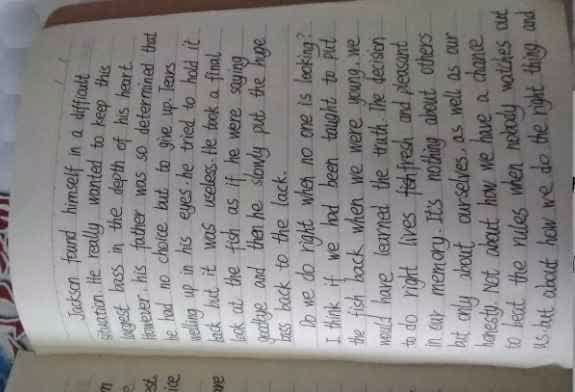 Jackson found himself in a difficult
situation. He really wanted to keep this
largest bass in the depth of his heart.
however his father was so determined that
he had no choice but to give up. Tears
welling up in his eyes. he tried to hold it
back but it was useless. He took a final
look at the fish as if he were saying
goodbye and then he slowly put the huge
bass back to the lack.
Do we do right when no one is looking?
I think if we had been taught to put
the fish back when we were young. we
would have learned the truth. The decision
to do right lives fresh and pleasant
in our memory. It's nothing about others
but only about ourselves, as well as our
honesty. Not about how we have a chance
to beat the rules when nobody watches out
us but about how we do the right thing and